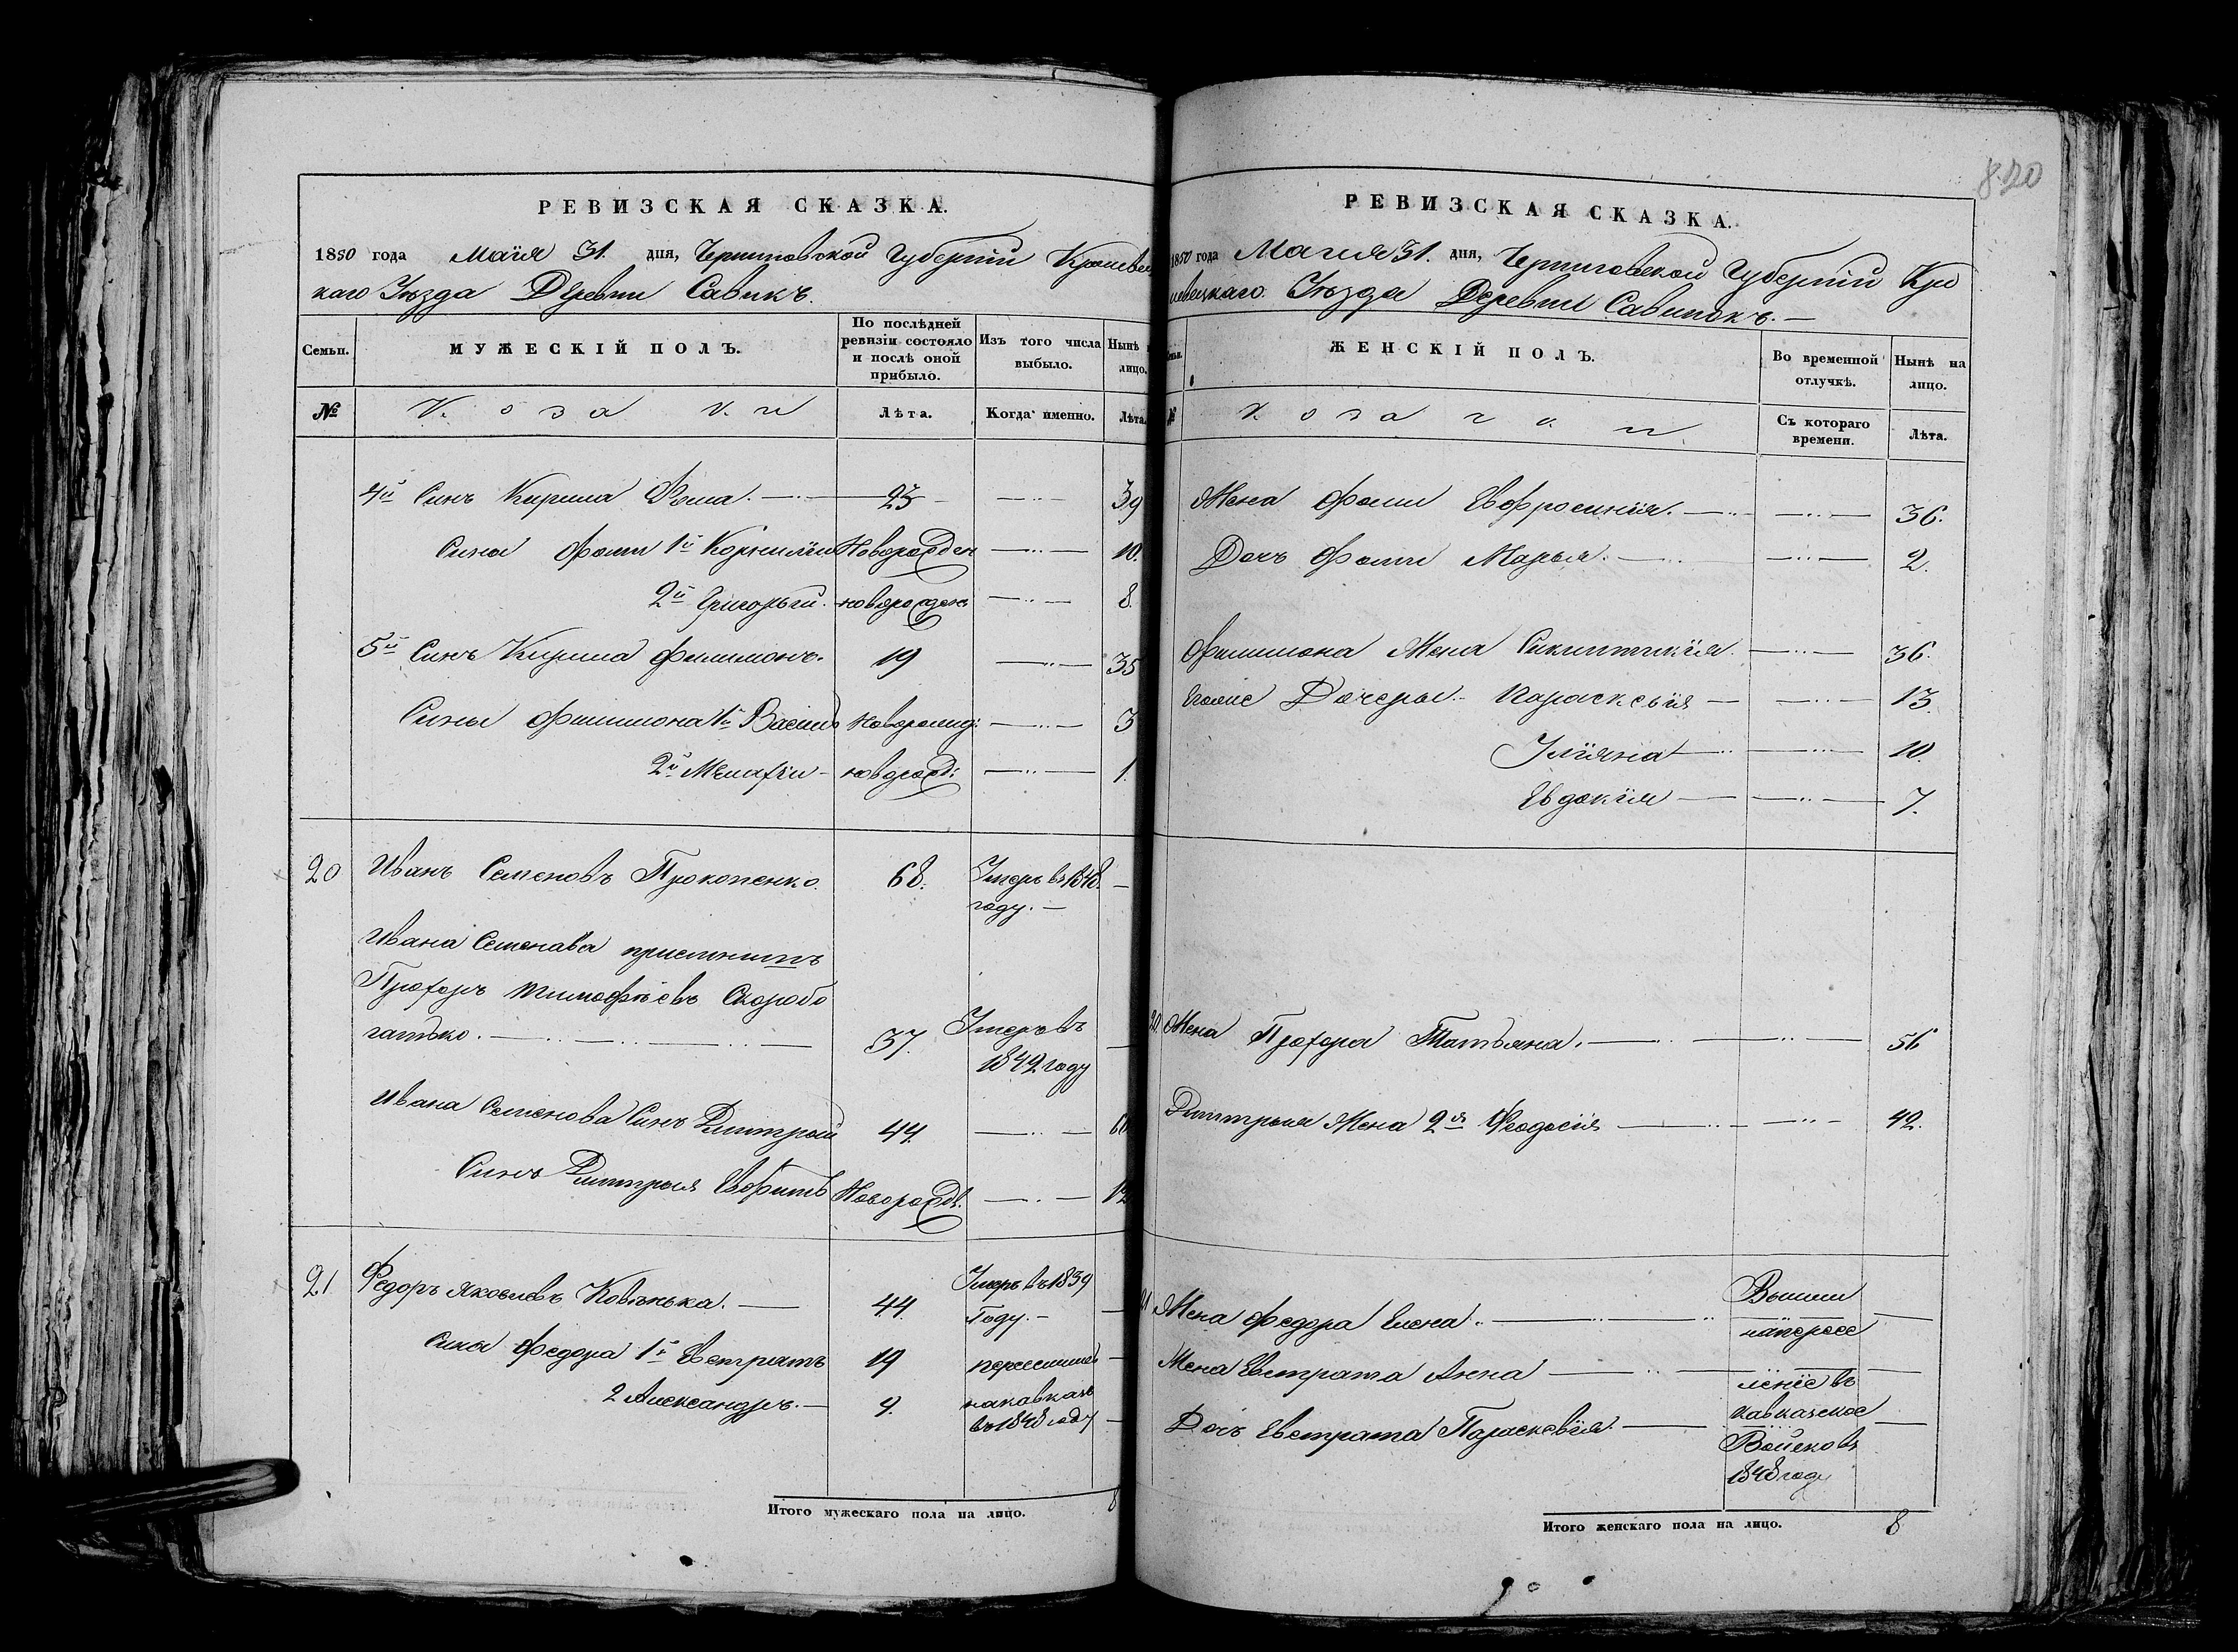 РЕВИЗСКАЯ СКАЗКА.
1850 года Маія 31. дня, Черниговской Губерніи Кролевец
каго Уезда Деревни Савинкъ.
Семьи. МУЖЕСКІЙ ПОЛЪ. По послѣдней ревизіи состояло и послѣ оной прибыло. Изъ того числа выбыло. Нынѣ лицо.
№ Козаки Лѣта. Когда именно. Лѣта.
4й Синъ Кирила Фома. — 23 — 39
Сины Фоми 1й Корнилій Новорожден — 10.
2й Григорьги. новорожден — 8.
5й Синъ Кирила Филимонъ. 19 — 35
Сины Филимона 1й Василь Новорожд: — 3
2й новорожд: — 1.
20 Иванъ Семеновъ Прокопенко. 68. Умеръ въ 1848. —
году. —
Ивана Семенава приемишъ
Прохоръ Тимофѣевъ Скоробо
гатько. — 37. Умеръ въ —
1842 году
Ивана Семенова Синъ Дмитрои 44. — 60
Синъ Дмитрыя Новорожд. —
21 Федоръ Яковлевъ Ковѣнька. — 44. Умеръ въ 1839
Году. — —
Сины Федора 1й Евстратъ 19 переселились —
2 Александръ. — 9. на кавказъ
въ 1848 году —
Итого мужескаго пола на лицо. 8
820
РЕВИЗСКАЯ СКАЗКА.
1850 года Магия 31. дня, Черниговской Губерніи Кро
левецкаго. Уѣзда Деревни Савинокъ. —
ЖЕНСКІЙ ПОЛЪ. Во временной отлучкѣ. Нынѣ на лицо.
№ Козачки. Съ котораго времени. Лѣта.
Жена Фоми Евфросинія. — — 36.
Дочъ Фоми Марья. — — 2.
Филимона Жена — — 36.
Егоже Дочеры — Параскевія — — 13.
Уліяна — — 10.
Евдокія — — 7.
20. Жена Прохора Татьяна. — — 56
Дмитрыя Жена 2я Феодосія — — 42.
21 Жена Федора Елена. — Вышли —
напересе
Жена Евстрата Анна — леніе въ —
кавказское
Дочъ Евстрата Параскевія. — Войско въ —
1848 году
Итого женскаго пола на лицо. 8